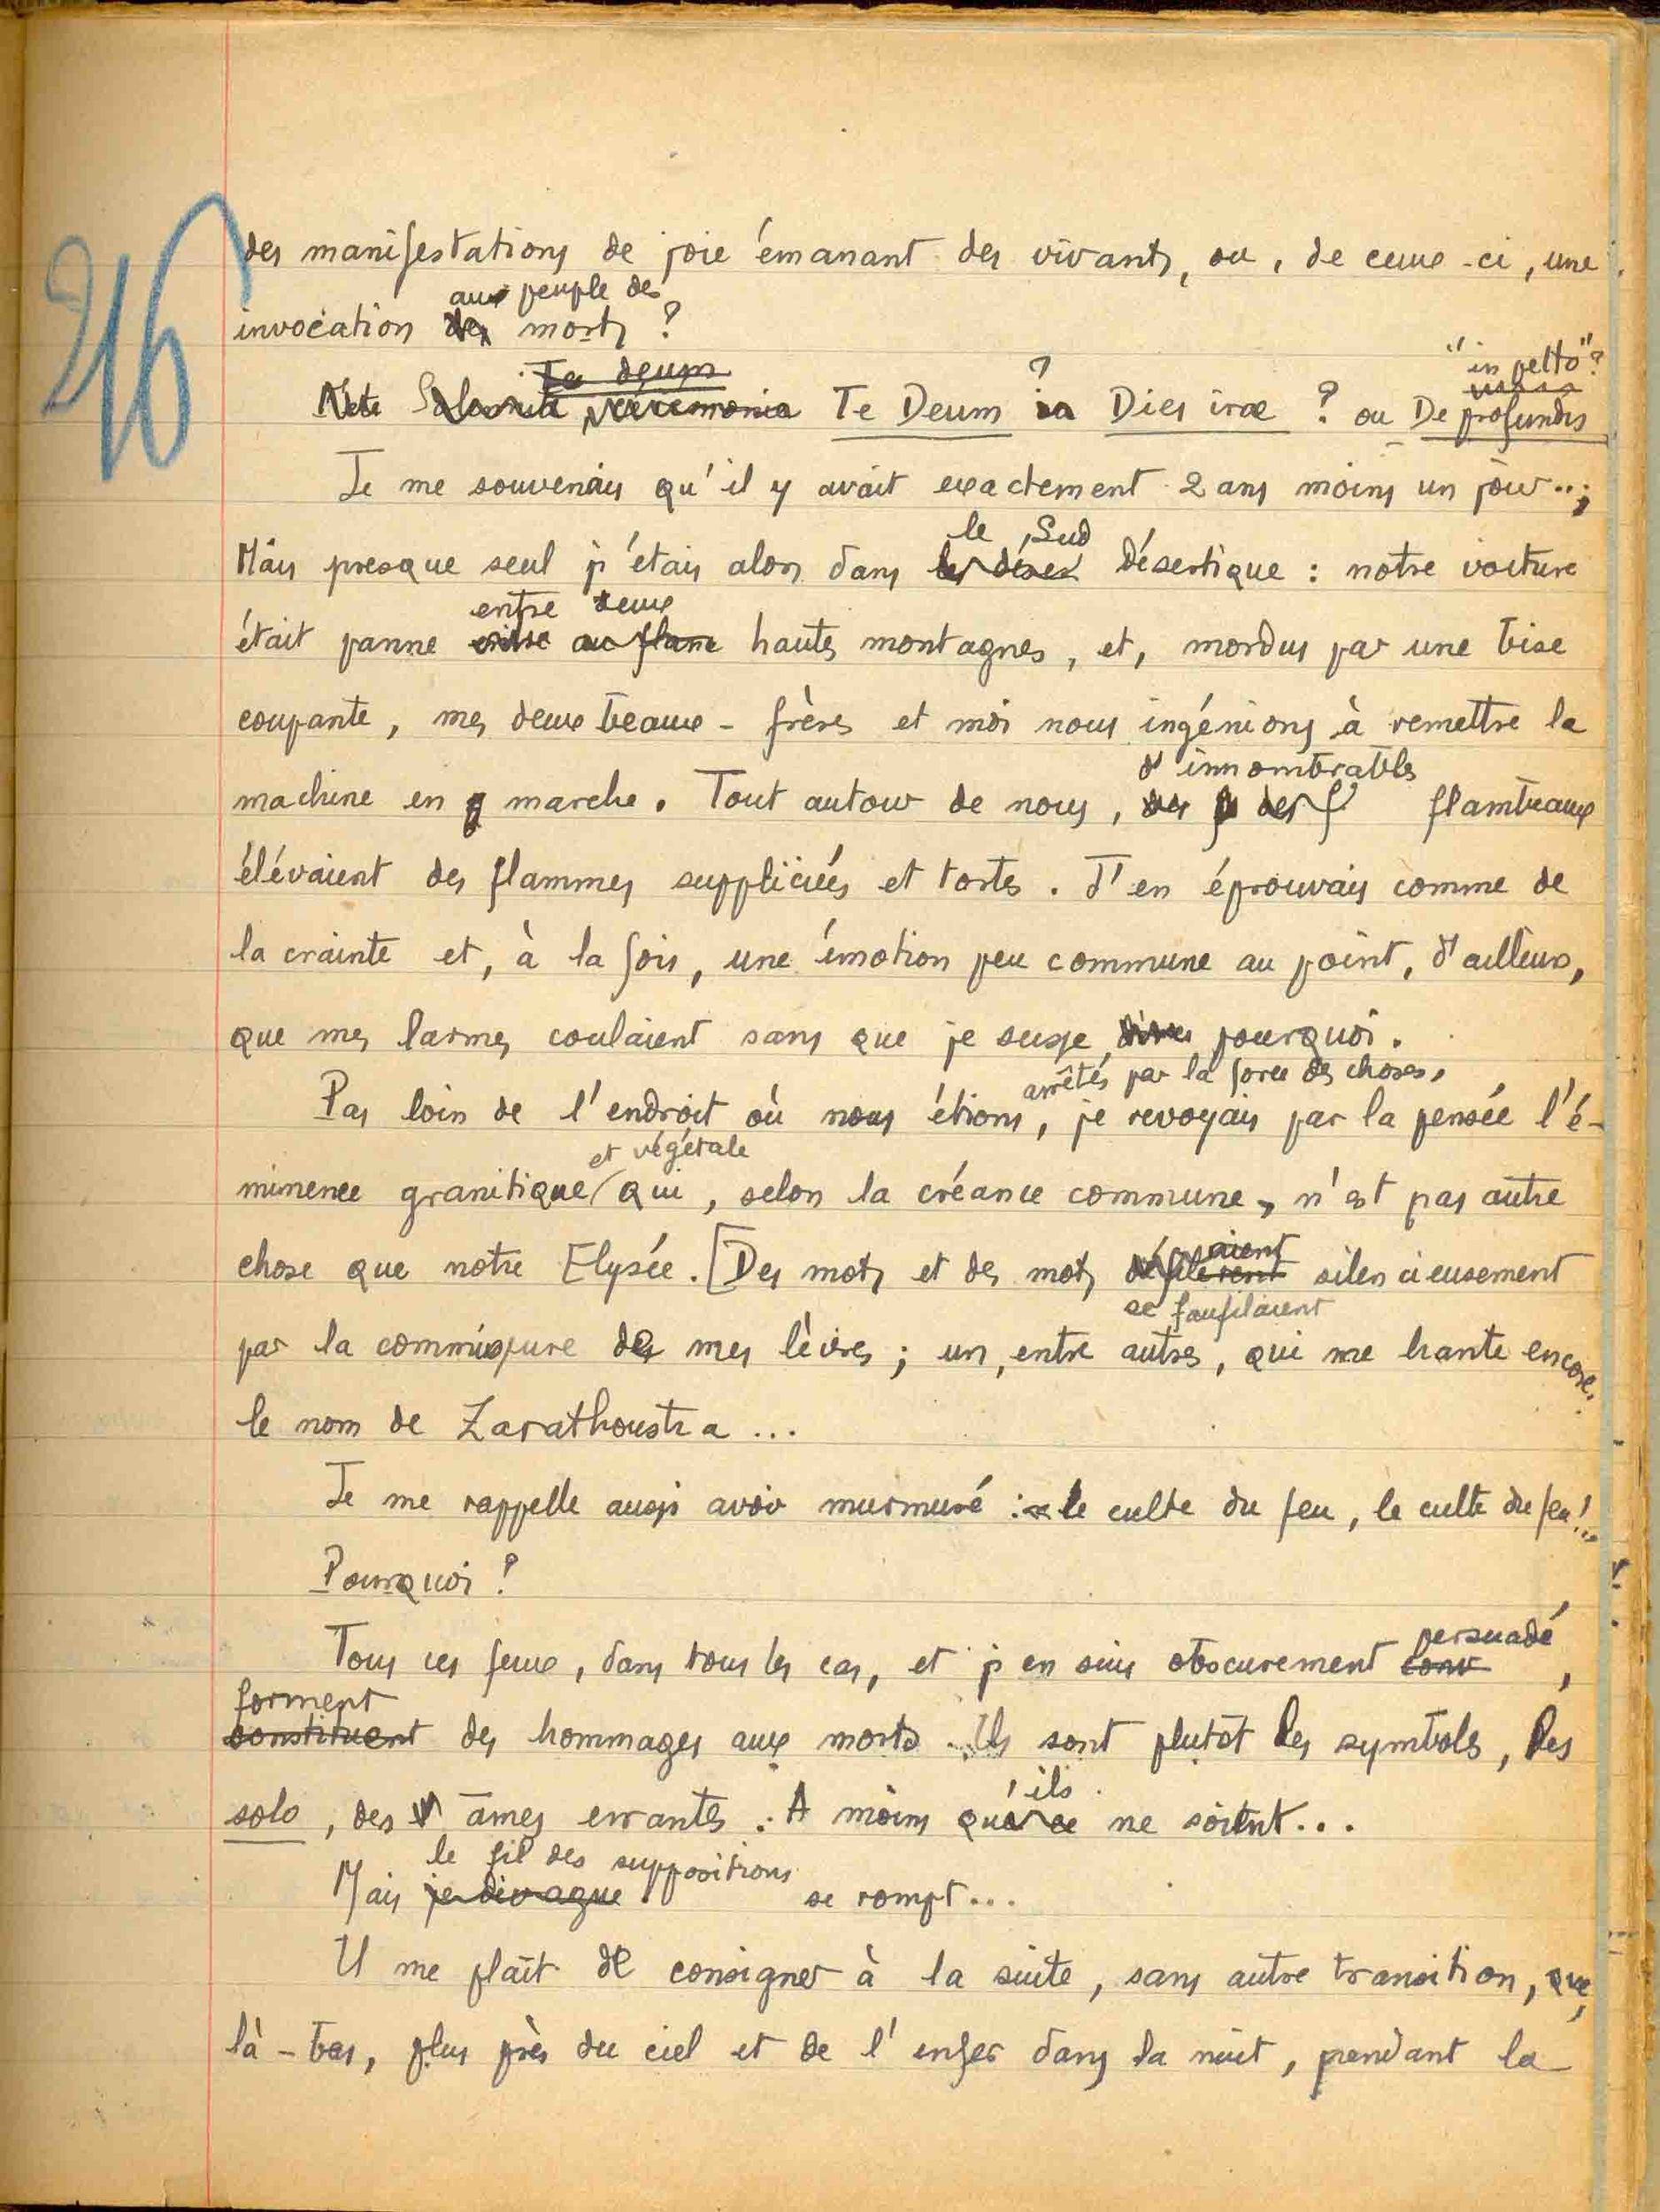 216
des manifestations de joie émanant des vivants, ou, de ceux-ci, une
aux peuple des
invocation des morts ?
Te deum
"in petto"?
Te Deum ? Dies irae ? ou De profundis
Je me souvenais qu'il y avait exactement 2 ans moins un jour..;
le Sud
Mais presque seul j'étais alors dans les déser désertique : notre voiture
entre deux
était panne entre au flanc hautes montagnes, et, mordus par une bise
coupante, mes deux beaux-frères et moi nous ingénions à remettre la
d'innombrables
machine en marche. Tout autour de nous, des f flambeaux
élévaient des flammes suppliciées et tortes. J'en éprouvais comme de
la crainte et, à la fois, une émotion peu commune au point, d'ailleurs,
que mes larmes coulaient sans que je susse dire pourquoi.
arrêtés par la force des choses,
Pas loin de l'endroit où nous étions, je revoyais par la pensée l'é-
et végétale
minence granitique qui, selon la créance commune, n'est pas autre
chose que notre Elysée. [Des mots et des mots défilèrent silencieusement
aient
se faufilaient
par la commissure de mes lèvres ; un, entre autres, qui me hante encore.
le nom de Zarathoustra ...
Je me rappelle aussi avoir murmuré : le culte du feu, le culte du feu!..
Pourquoi ?
persuadé
Tous ces feux, dans tous les cas, et j'en suis obscurement conv ,
forment
constituent des hommages aux morts. Ils sont plutôt les symboles, les
solo, des âmes errantes. A moins qu'ils ne soient...
le fil des suppositions
Mais je divague se rompt...
Il me plaît de consigner à la suite, sans autre transition, que,
là-bas, plus près du ciel et de l'enfer dans la nuit, pendant la